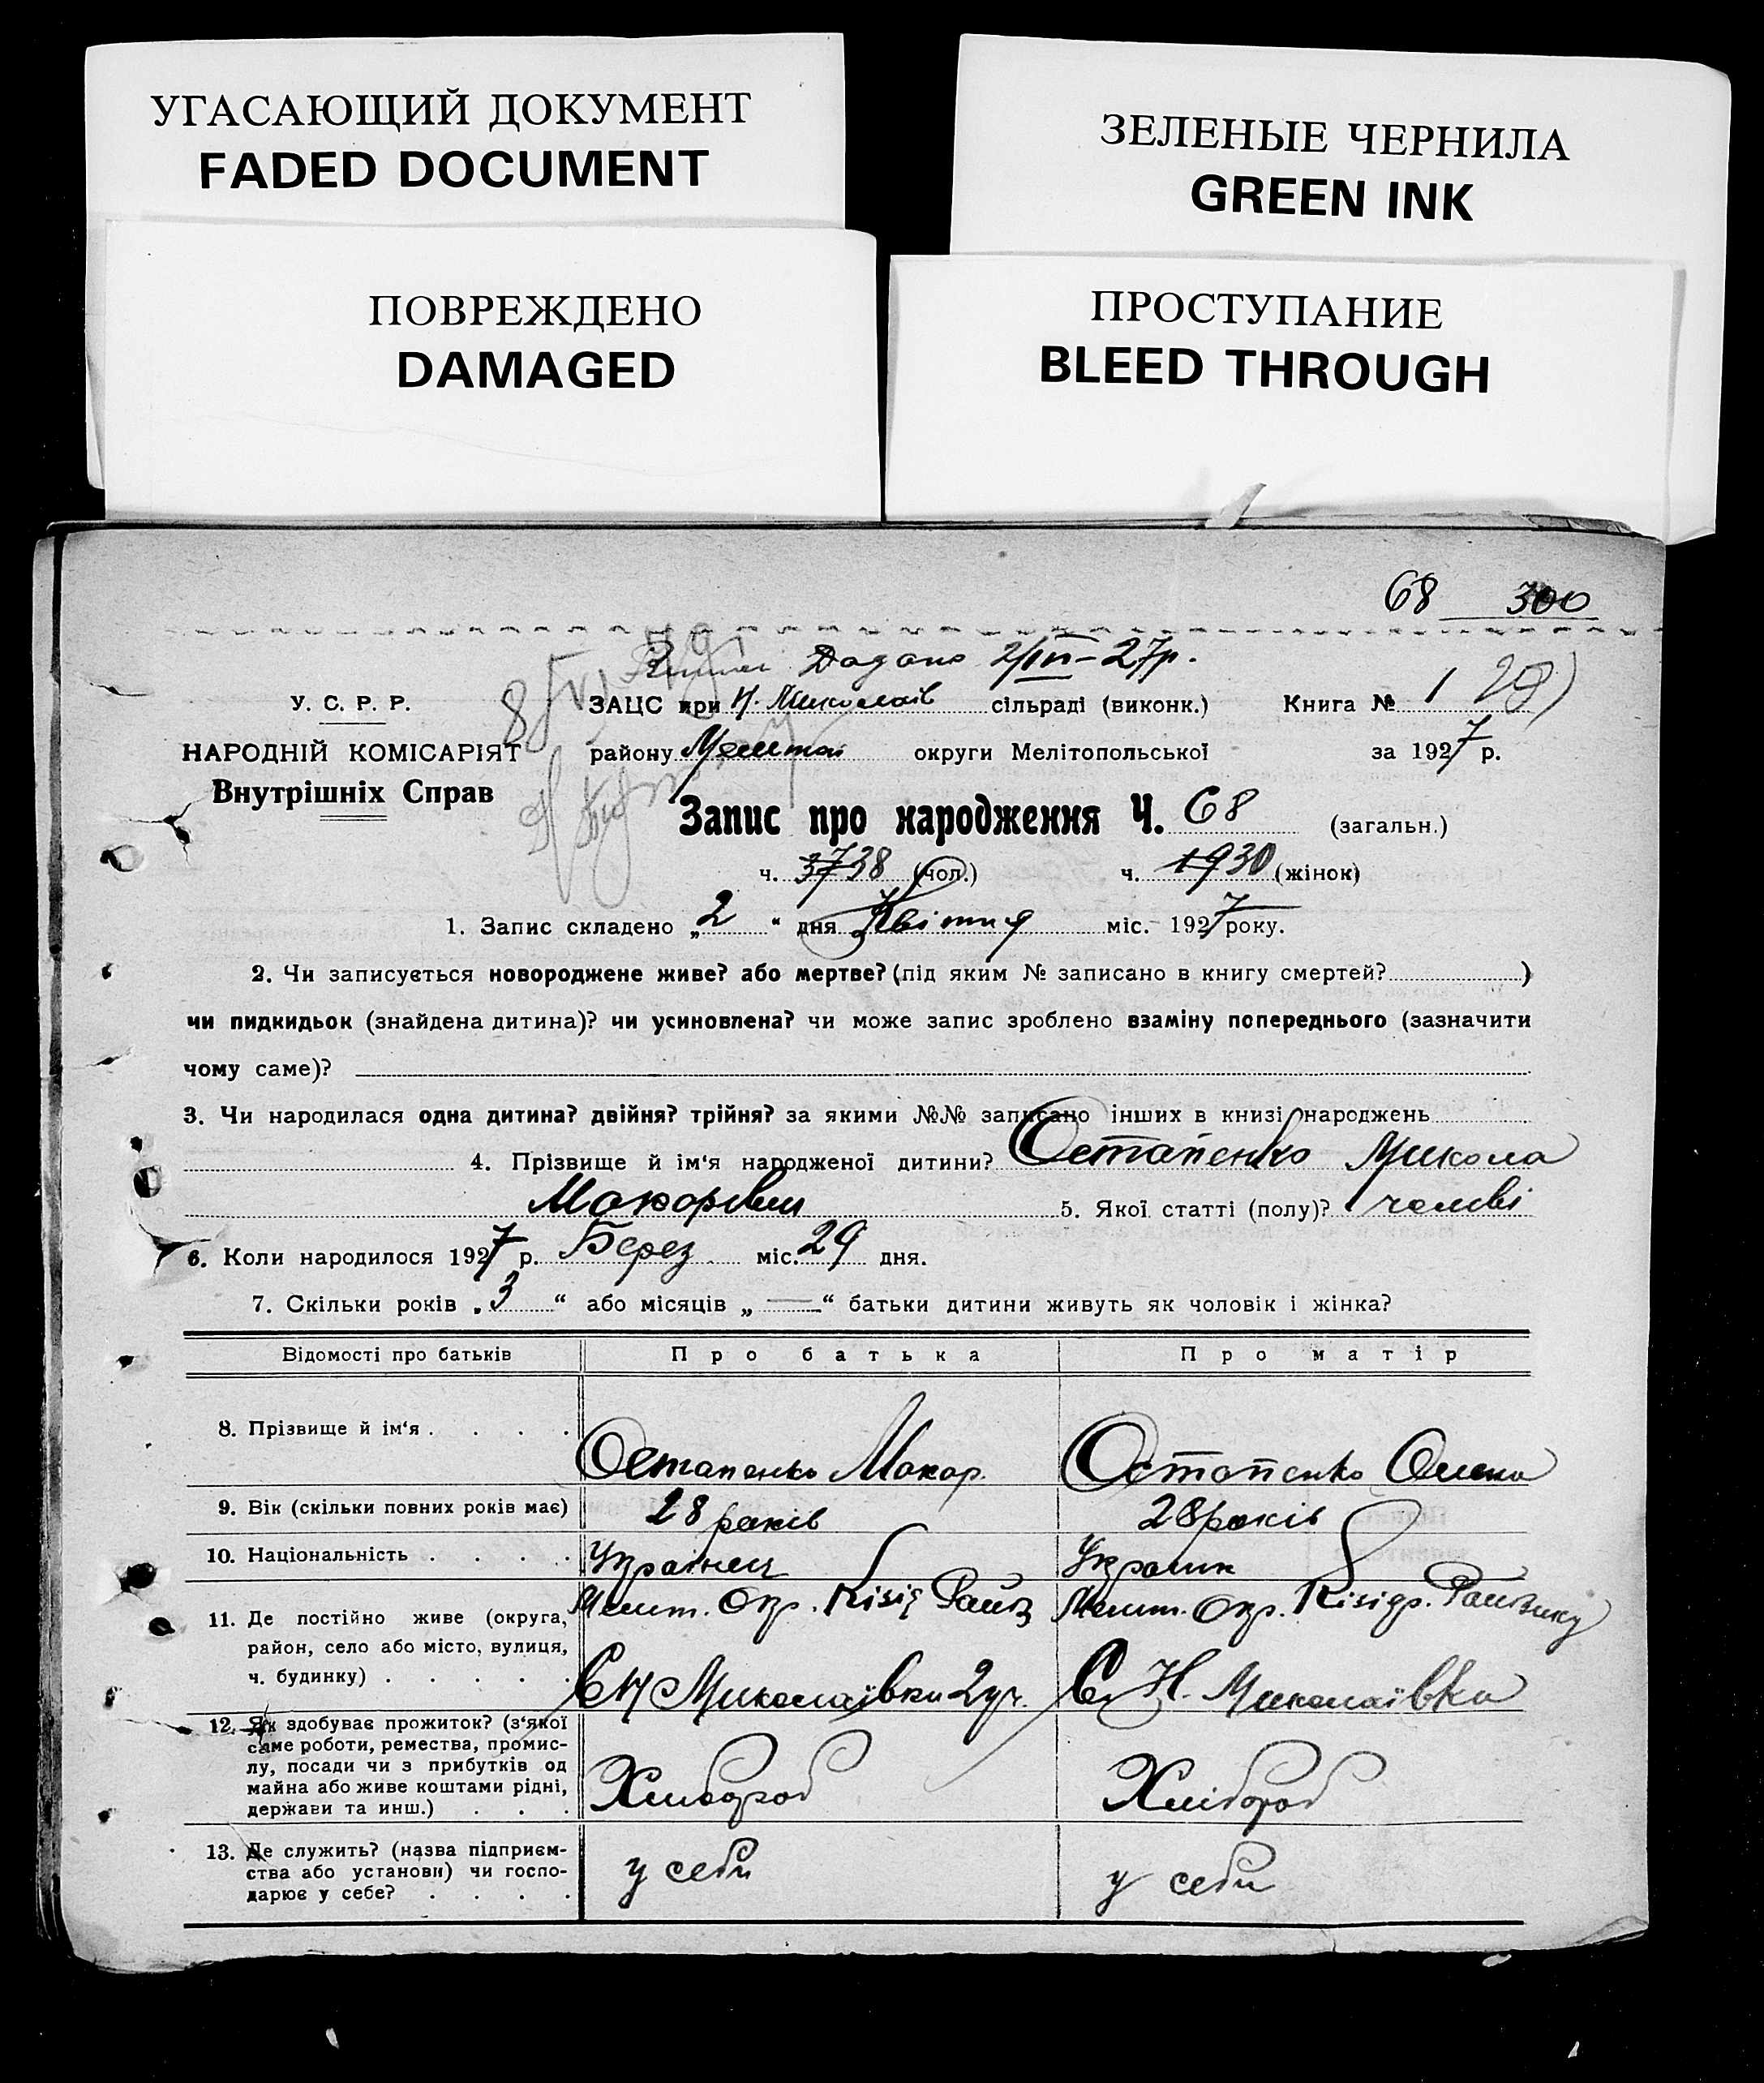 УГАСАЮЩИЙ ДОКУМЕНТ
FADED DOCUMENT
ЗЕЛЕНЫЕ ЧЕРНИЛА
GREEN INK
ПОВРЕЖДЕНО
DAMAGED
ПРОСТУПАНИЕ
BLEED THROUGH
68 300
Додано 2/IV-27р.
У. С. Р. Р.
ЗАЦС при Н. Миколаїв сільраді (виконк.) Книга № 1
НАРОДНІЙ КОМІСАРІЯТ
району Мелітоп округи Мелітопольської за 1927 р.
Внутрішніх Справ
Запис про народження Ч. 68 (загальн.)
ч. 3738 (чол.) ч. 1930 (жінок)
1. Запис складено „2“ дня Квітня міс. 1927 року.
2. Чи записується новороджене живе? або мертве? (під яким № записано в книгу смертей? )
чи пидкидьок (знайдена дитина)? чи усиновлена? чи може запис зроблено взаміну попереднього (зазначити
чому саме)?
3. Чи народилася одна дитина? двійня? трійня? за якими №№ записано інших в книзі народжень
4. Прізвище й ім‘я народженої дитини? Остапенко Микола
Макорович 5. Якої статті (полу)? чолові
6. Коли народилося 1927 р. Берез міс. 29 дня.
7. Скільки років „3“ або місяців „—“ батьки дитини живуть як чоловік і жінка?
Відомості про батьків Про батька Про матір
8. Прізвище й ім‘я . . . . Остапенко Макар. Остапенко Олена
9. Вік (скільки повних років має) 28 років 28 років
10. Національність . . . . Українец Украинк
11. Де постійно живе (округа, Мелит. Окр. Кізід Райв Мелит. Окр. Кізідр. Райвику
район, село або місто, вулиця,
ч. будинку) . . . . . С Н Миколаївки 2 уч. С. Н. Миколаївка
12. Як здобуває прожиток? (з‘якої
саме роботи, ремества, промис-
лу, посади чи з прибутків од
майна або живе коштами рідні, Хлибороб Хлібороб
держави та инш.) . . .
13. Де служить? (назва підприєм-
ства або установи) чи госпо- у себи у себи
дарює у себе? . . . .